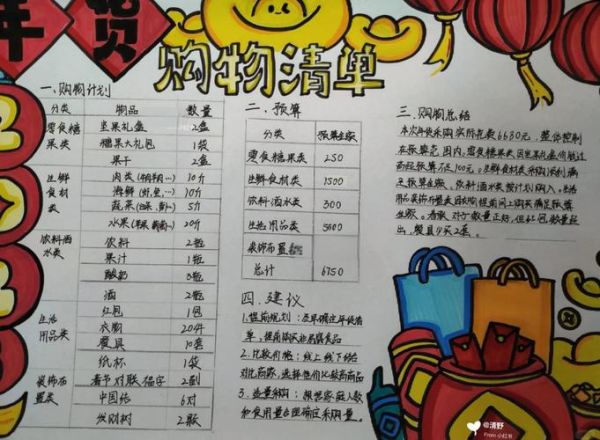 年货
购物清单
一、购物计划
分类 物品 数量
零食糖果类 坚果礼盒 2盒
糖果大礼包 1袋
果干 2盒
生鲜食材类 肉类 10斤
海鲜 10斤
蔬菜 5斤
水果 20斤
饮料酒水类 饮料 2瓶
果汁 1瓶
酸奶 3瓶
酒 2瓶
生活用品类 红包 1包
衣服 20件
餐具 10套
纸杯 1袋
装饰布置类 春节对联、福字 2副
中国结 6对
发财树 2颗
二、预算
分类 预算金额
零食糖果类 250
生鲜食材类 1500
饮料酒水类 300
生活用品类
装饰布置
总计 6750
四、建议
1.提前规划:
单,提前购买
2.比较价格:线上线下多
对比商家,选择性价比较高商品
3.适量采购:根据家庭人数
和食用量合理确定采购量。
三、购物总结
本次年货采购实际花费6630元,整体控制
在预算范围内,零食糖果类因坚果礼盒价格过
高超预算不足100元,生鲜食材类采购顺利满
足预算金额,饮料酒水类按计划购入,生活
用品装饰布置类因
金额。清单对于数量正好,但红包数量超
出,餐具少买2套。
@清野
From 小红书